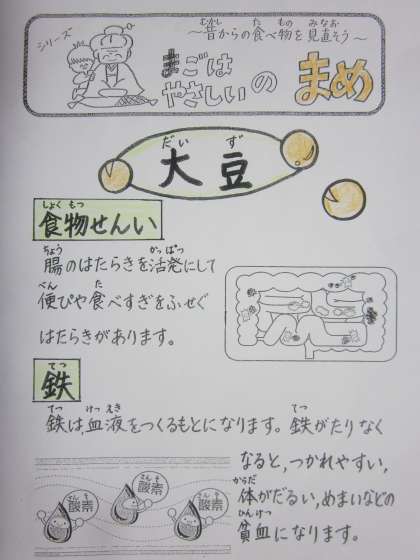 シリーズ
～昔からの食べ物を見直そう～
まごは
やさしいの
まめ
大豆
食物せんい
腸のはたらきを活発にして
便ぴや食べすぎをふせぐ
はたらきがあります。
鉄
鉄は,血液をつくるもとになります。鉄がたりなく
なると,つかれやすい,
体がだるい,めまいなどの
貧血になります。
酸素
酸素
酸素